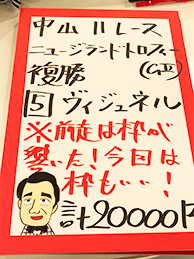 中山 11レース
ニュージーランドトロフィー
複勝 (GⅡ)
5 ヴィジュネル
※前走は枠が
響いた!今回は
枠も・・!
計20000円